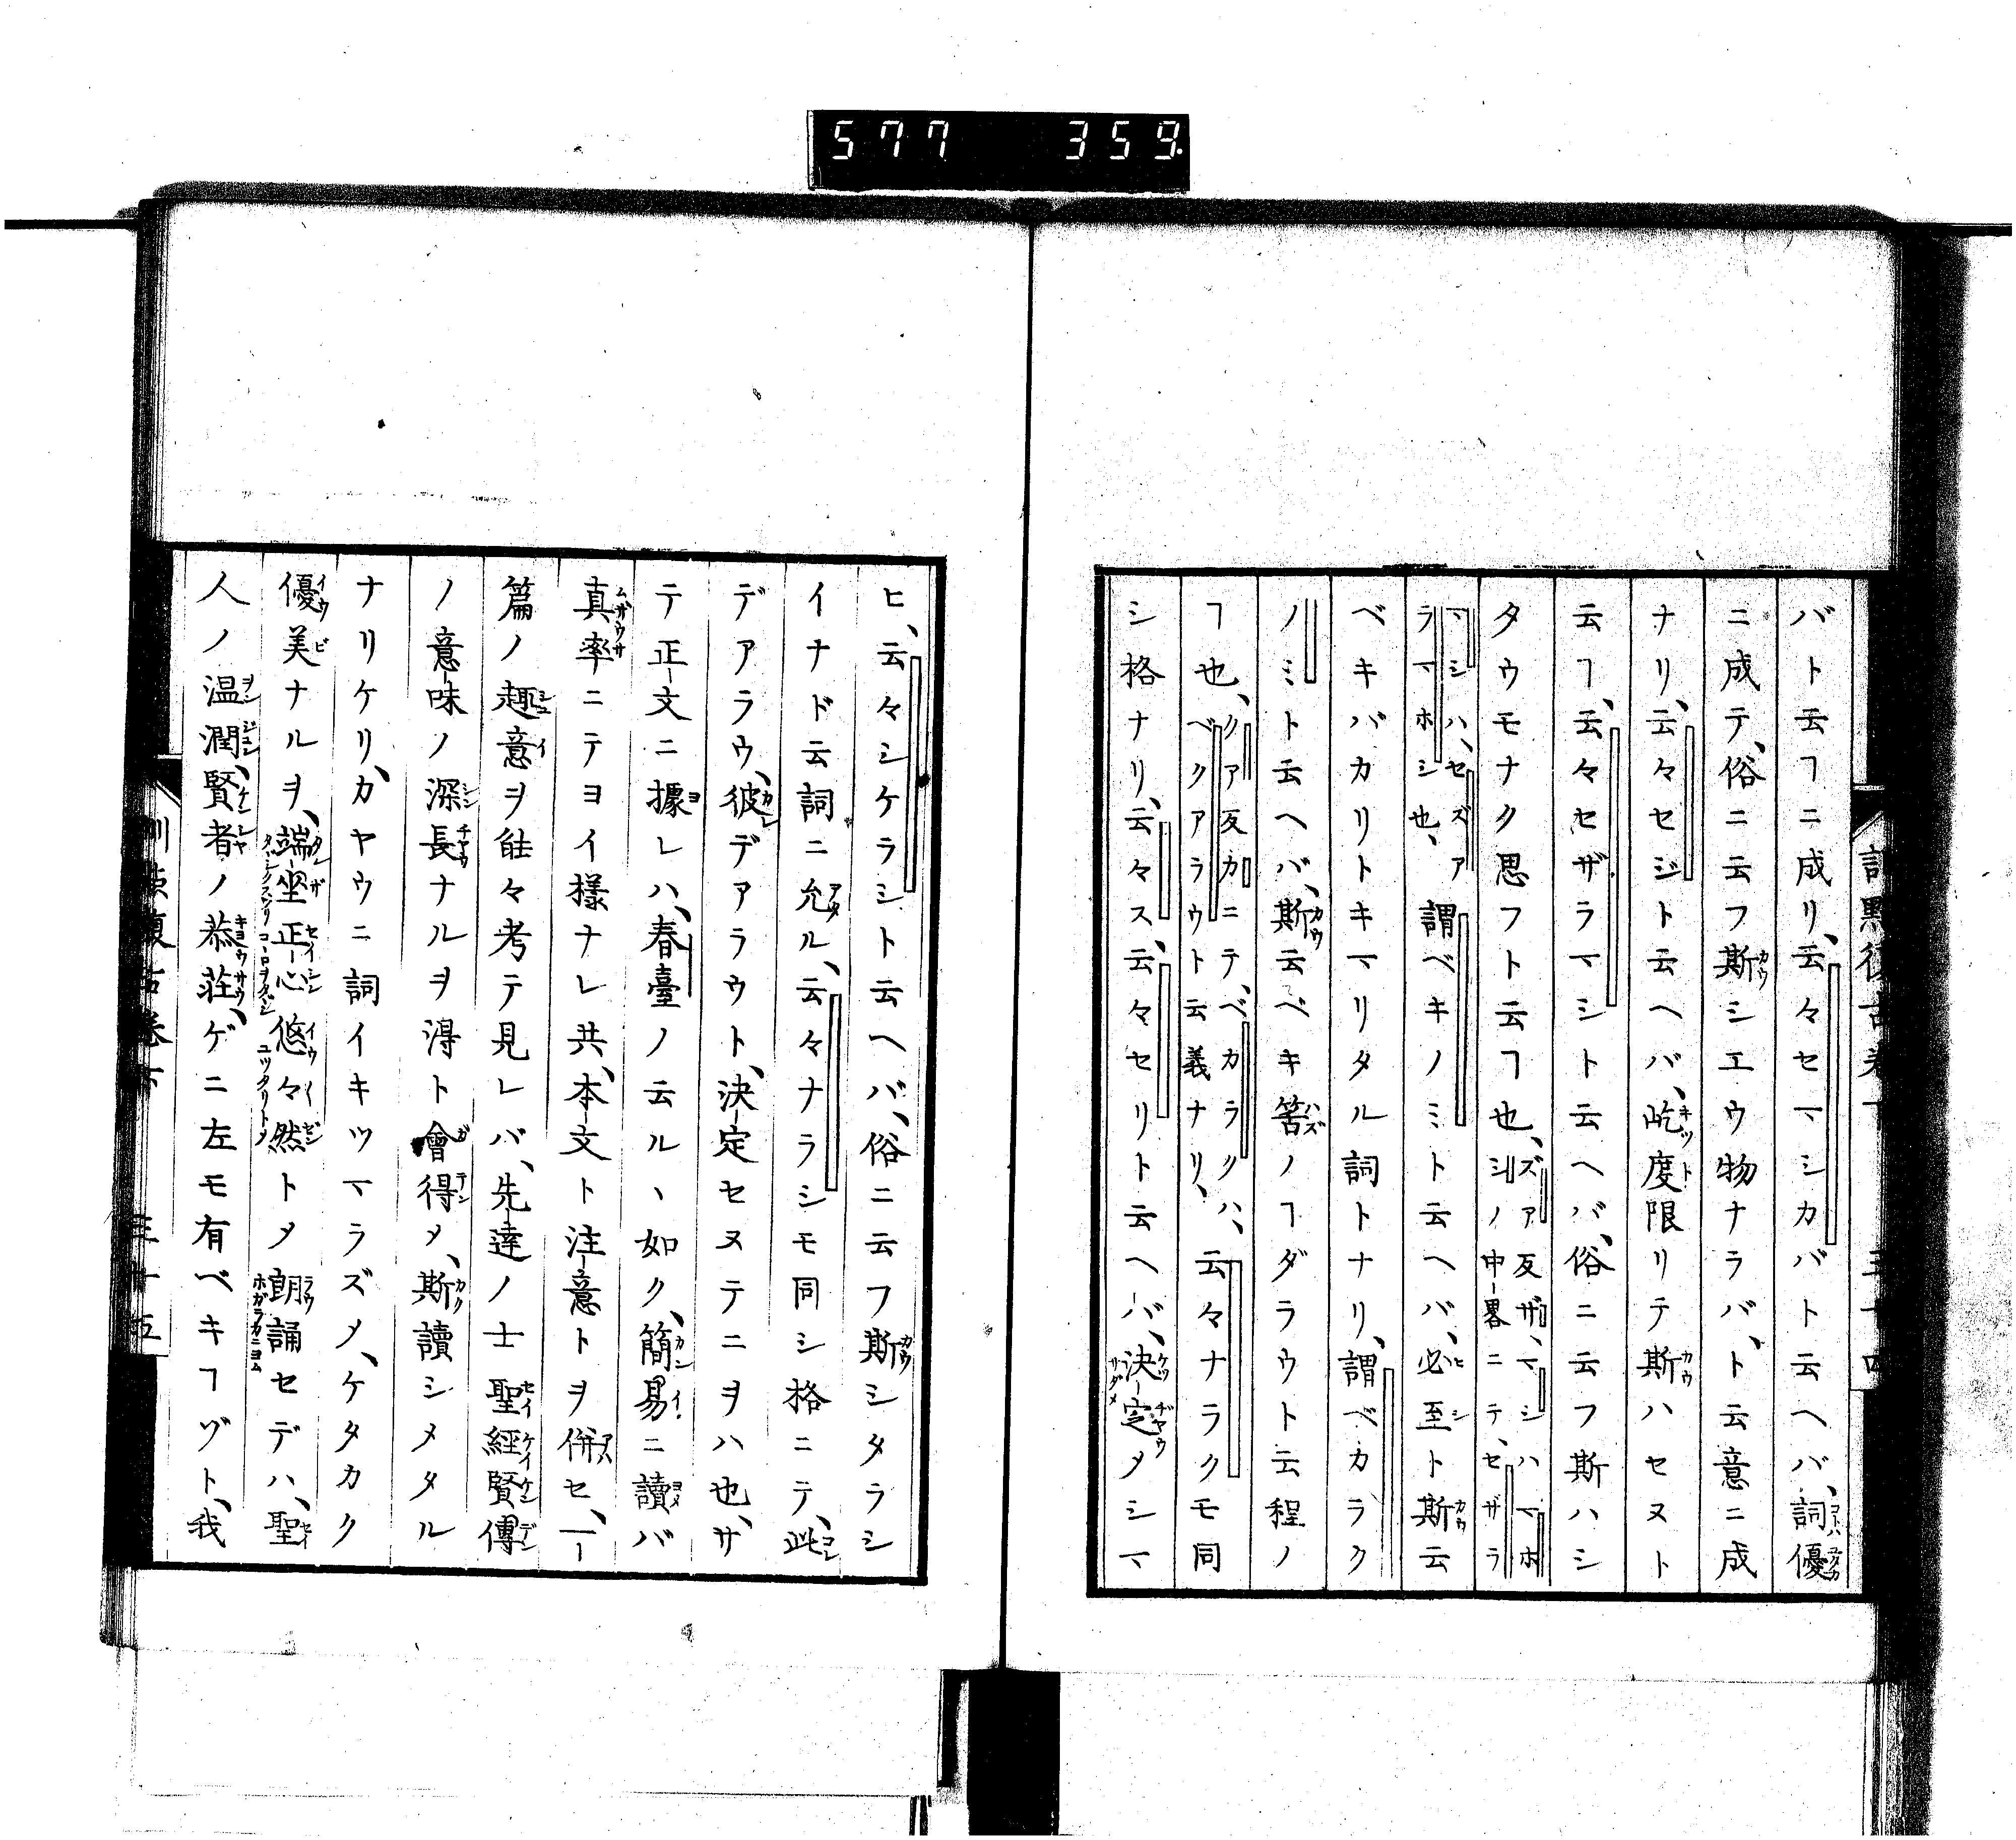 577 359.
訓點復古卷下 三十四
バト云ヿニ成リ、云々セマシカバト云ヘバ、詞優
ニ成テ、俗ニ云フ斯シエウ物ナラバ、ト云意ニ成
ナリ、云々セジト云ヘバ、屹度限リテ斯ハセヌト
云ヿ、云々セザラマシト云ヘバ、俗ニ云フ斯ハシ
タウモナク思フト云ヿ也、ズア反ザ、マシハマホ
シノ中畧ニテ、セザラ
マシハ、セズア
ラマホシ也、謂ベキノミト云ヘバ、必至ト斯云
ベキバカリトキマリタル詞トナリ、謂ベカラク
ノミト云ヘバ、斯云ベキ筈ノヿダラウト云程ノ
ヿ也、クア反カニテ、ベカラクハ、
ベクアラウト云義ナリ、云々ナラクモ同
シ格ナリ、云々ス、云々セリト云ヘバ、決定〆シマ
ヒ、云々シケラシト云ヘバ、俗ニ云フ斯シタラシ
イナド云詞ニ允ル、云々ナラシモ同シ格ニテ、此
デアラウ、彼デアラウト、決定セヌテニヲハ也、サ
テ正文ニ據レハ、春臺ノ云ルヽ如ク、簡易ニ讀バ
真率ニテヨイ様ナレ共、本文ト注意トヲ併セ、一
篇ノ趣意ヲ能々考テ見レバ、先達ノ士聖經賢傳
ノ意味ノ深長ナルヲ淂ト會得〆、斯讀シメタル
ナリケリ、カヤウニ詞イキツマラズ〆、ケタカク
優美ナルヲ、端坐正心悠々然ト〆朗誦セデハ、聖
人ノ温潤、賢者ノ恭荘、ゲニ左モ有ベキヿヅト、我
訓點復古卷下 三十五